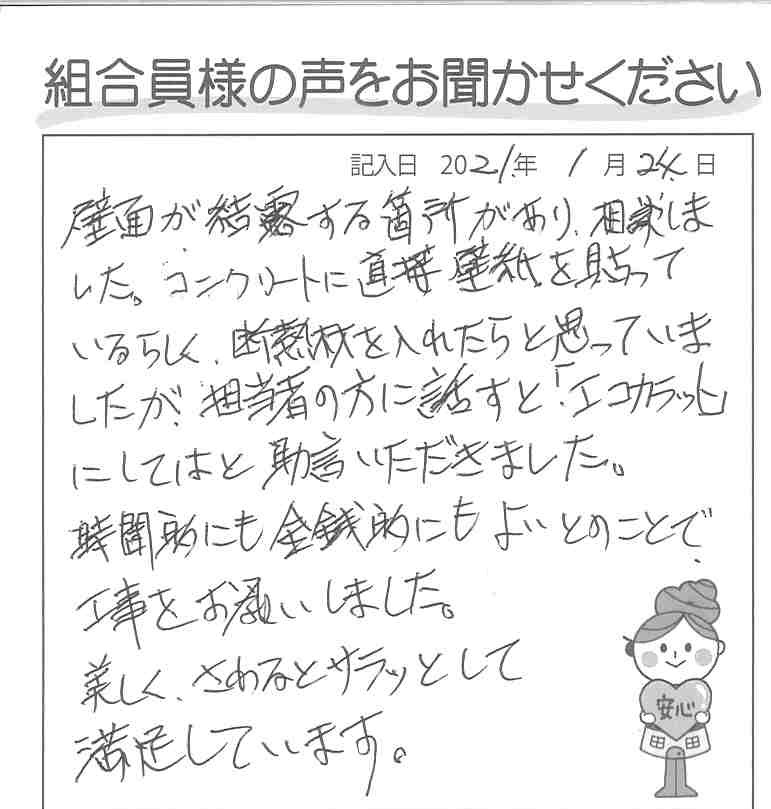 組合員様の声をお聞かせください
記入日 2021年 1月24日
壁面が結露する箇所があり、相談しま
した。コンクリートに直接壁紙を貼って
いるらしく、断熱材を入れたらと思っていま
したが、担当者の方に話すと「エコカラット」
にしてはと助言いただきました。
時間的にも金銭的にもよいとのことで
工事をお願いしました。
美しく、さわるとサラッとして
満足しています。
安心